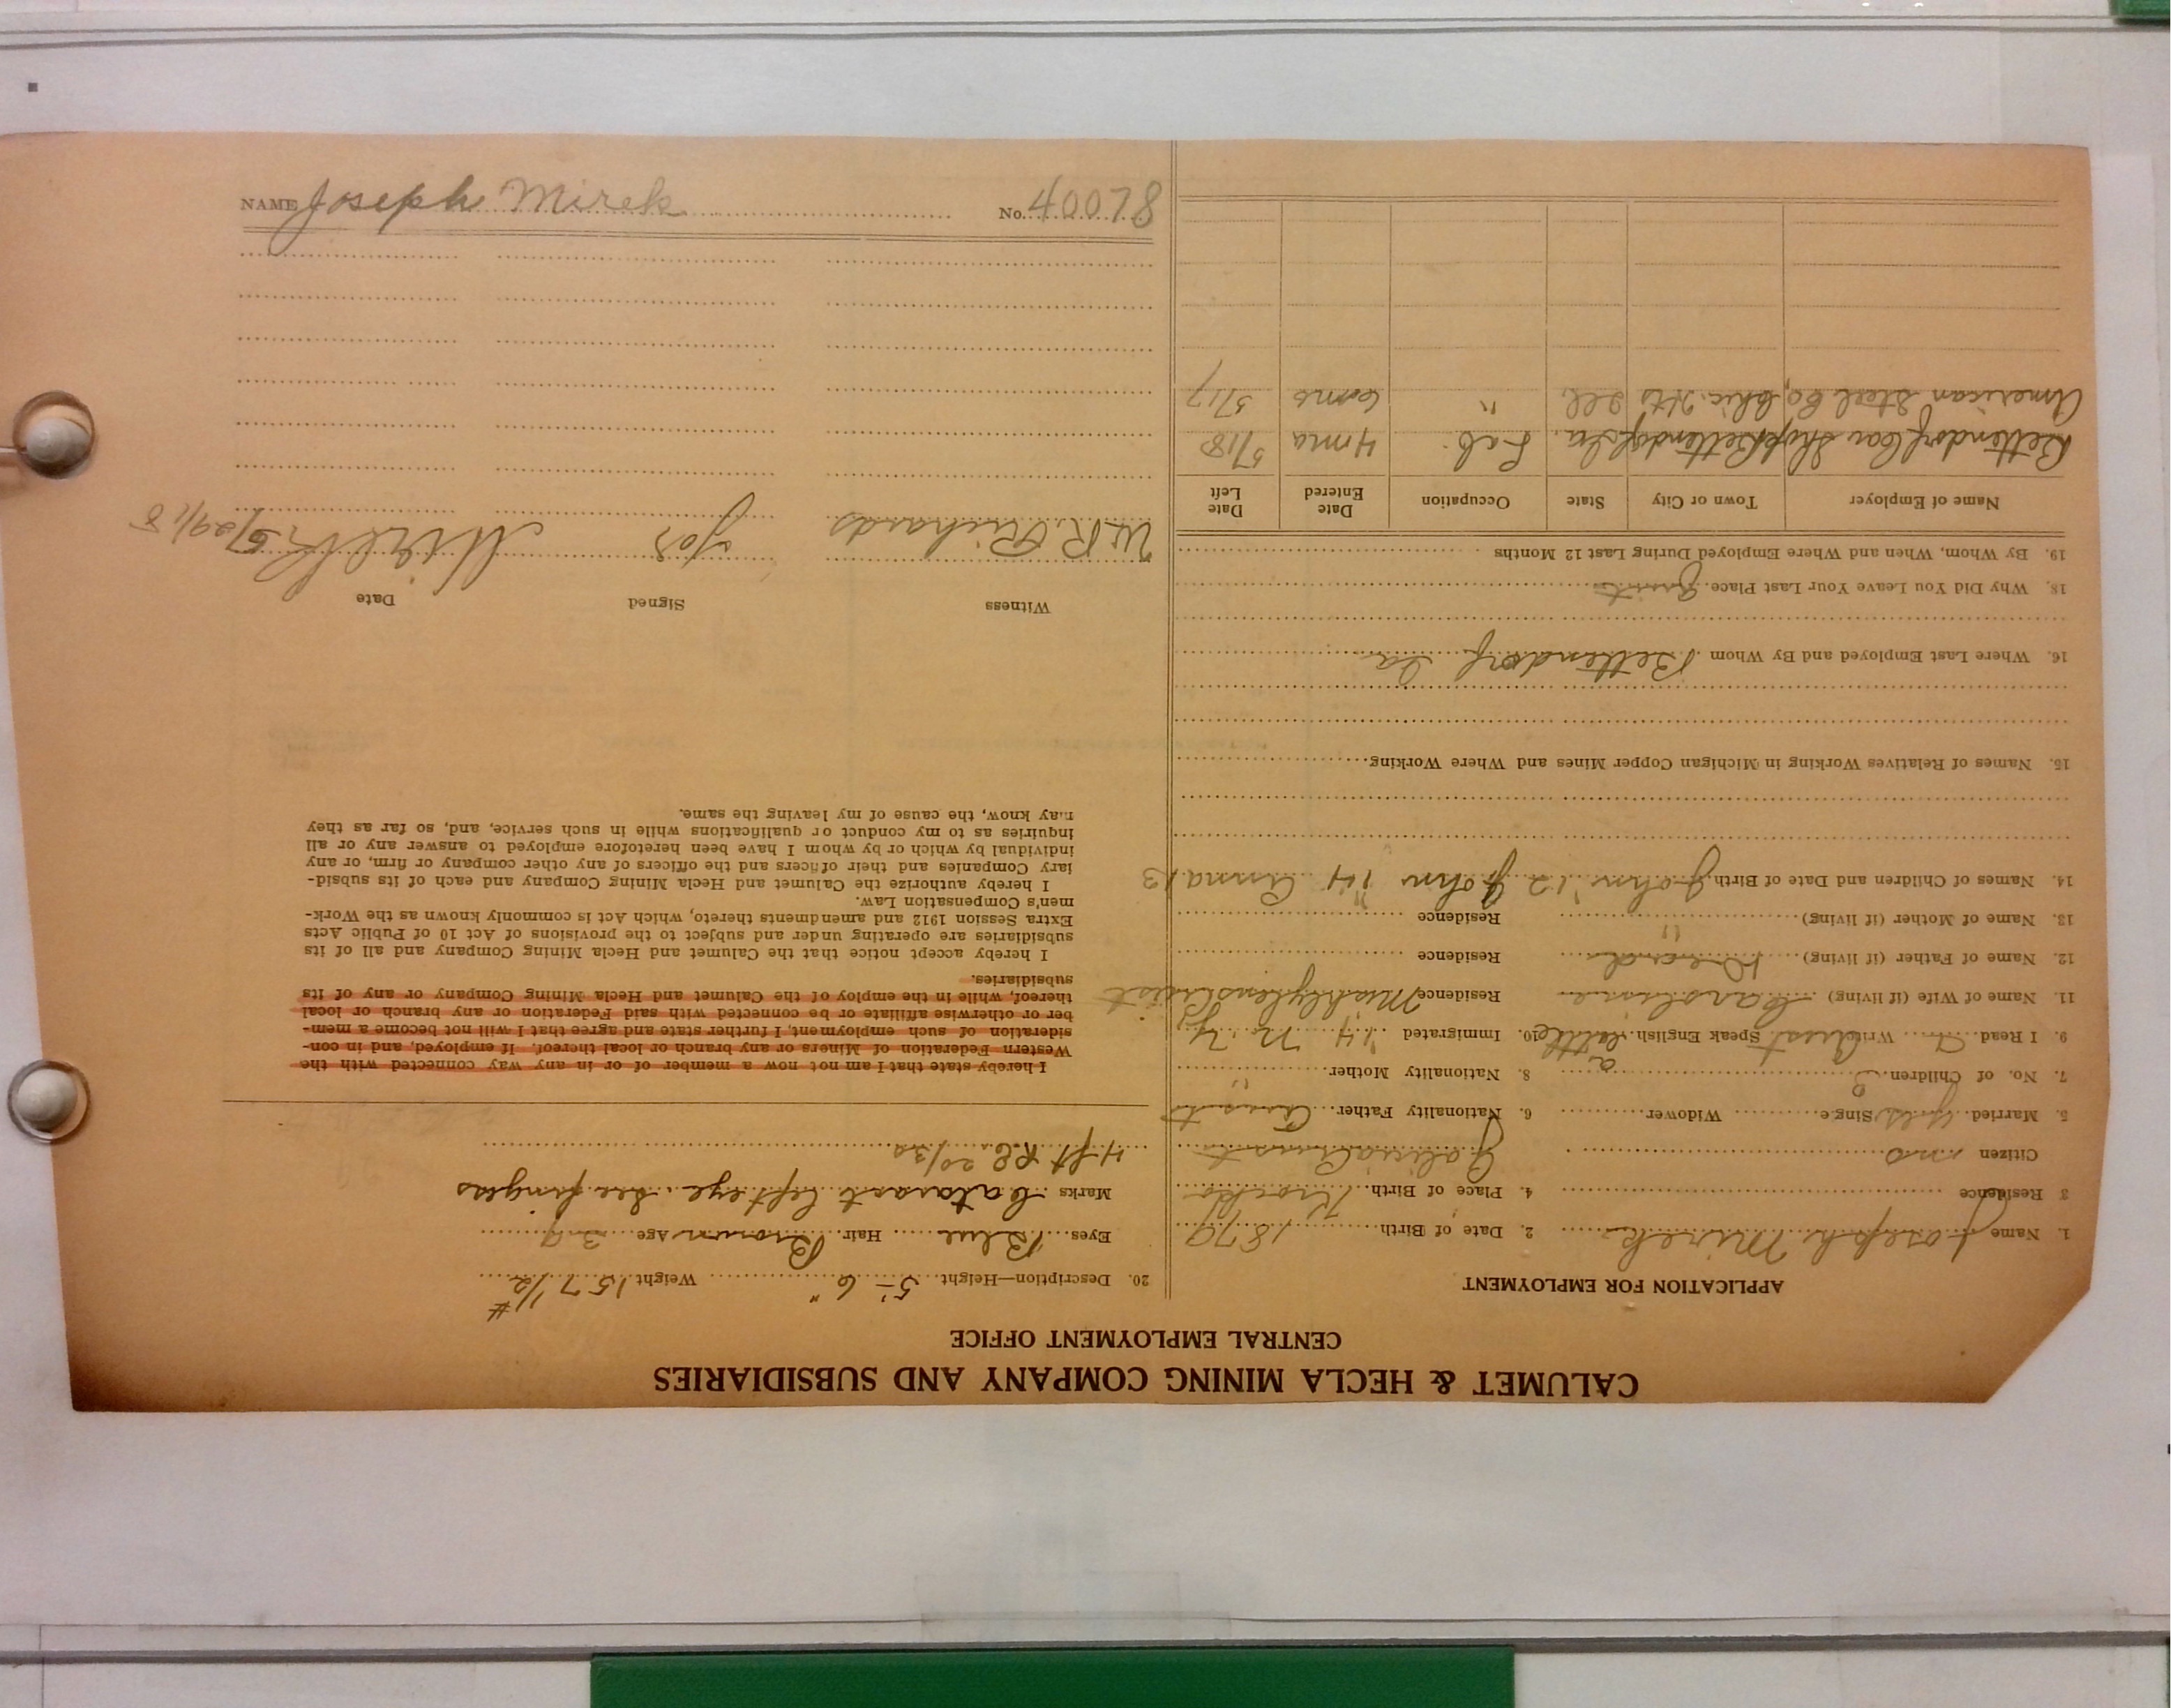 NAME Joseph Mirek No. 40078
CALUMET & HECLA MINING COMPANY AND SUBSIDIARIES
CENTRAL EMPLOYMENT OFFICE
APPLICATION FOR EMPLOYMENT
1. Name Joseph Mirek 2. Date of Birth 1879
3 Residence 4. Place of Birth
Citizen no Galicia Aust
5. Married yes Single Widower 6. Nationality Father Aust
7. No. of Children 3 8. Nationality Mother "
9. I Read Write Aust Speak English a little 10. Immigrated '14 N.Y.
11. Name of Wife (if living) Caroline Residence
12. Name of Father (if living) Dead Residence
13. Name of Mother (if living) " Residence
14. Names of Children and Date of Birth John '12 John '14 Anna 13
15. Names of Relatives Working in Michigan Copper Mines and Where Working
16. Where Last Employed and By Whom Bettendorf Ia
18. Why Did You Leave Your Last Place. quit
19. By Whom, When and Where Employed During Last 12 Months
Name of Employer Town or City State Occupation Date Entered Date Left
Bettendorf Car Shop Bettendorf Ia. Lab. 4 mo 5/18
American Steel Co, Chic. Hts Ill " 6 mo 5/17
20. Description—Height 5'-6" Weight 157 1/2 #
Eyes Blue Hair Brown Age 39
Marks Cataract left eye. See fingers
4 ft R.E. 20/30
I hereby state that I am not now a member of or in any way connected with the
Western Federation of Miners or any branch or local thereof. If employed, and in con-
sideration of such employment, I further state and agree that I will not become a mem-
ber or otherwise affiliate or be connected with said Federation or any branch or local
thereof, while in the employ of the Calumet and Hecla Mining Company or any of its
subsidiaries.
I hereby accept notice that the Calumet and Hecla Mining Company and all of its
subsidiaries are operating under and subject to the provisions of Act 10 of Public Acts
Extra Session 1912 and amendments thereto, which Act is commonly known as the Work-
men's Compensation Law.
I hereby authorize the Calumet and Hecla Mining Company and each of its subsid-
iary Companies and their officers and the officers of any other company or firm, or any
individual by which or by whom I have been heretofore employed to answer any or all
inquiries as to my conduct or qualifications while in such service, and, so far as they
may know, the cause of my leaving the same.
Witness Signed Date
W.R. Richards Jos Mirek 5/29/18